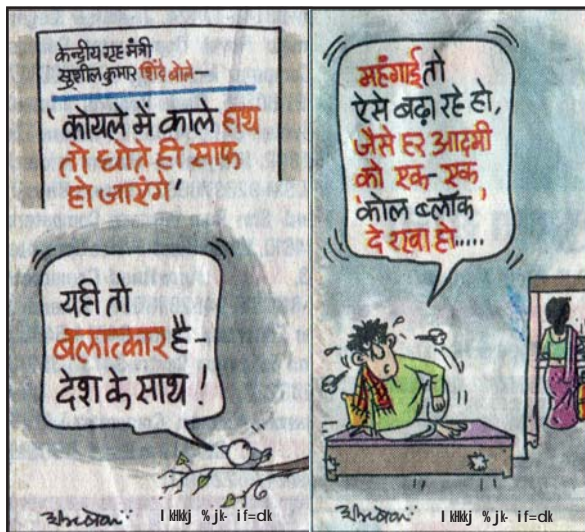 केन्द्रीय गृह मंत्री
सुशील कुमार शिंदे बोले-
'कोयले में काले हाथ
तो धोते ही साफ
हो जाएंगे'
यही तो
बलात्कार है-
देश के साथ!
l kHkkj % jk- if=dk
महंगाई तो
ऐसे बढ़ा रहे हो,
जैसे हर आदमी
को एक-एक
'कोल ब्लॉक'
दे रखा हो.....
l kHkkj % jk- if=dk